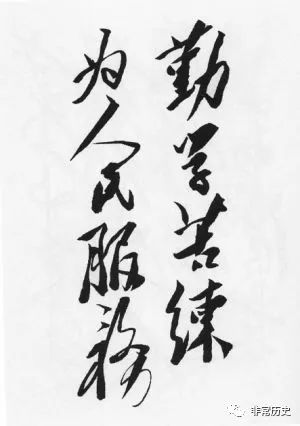 勤学苦练
为人民服务
非常历史